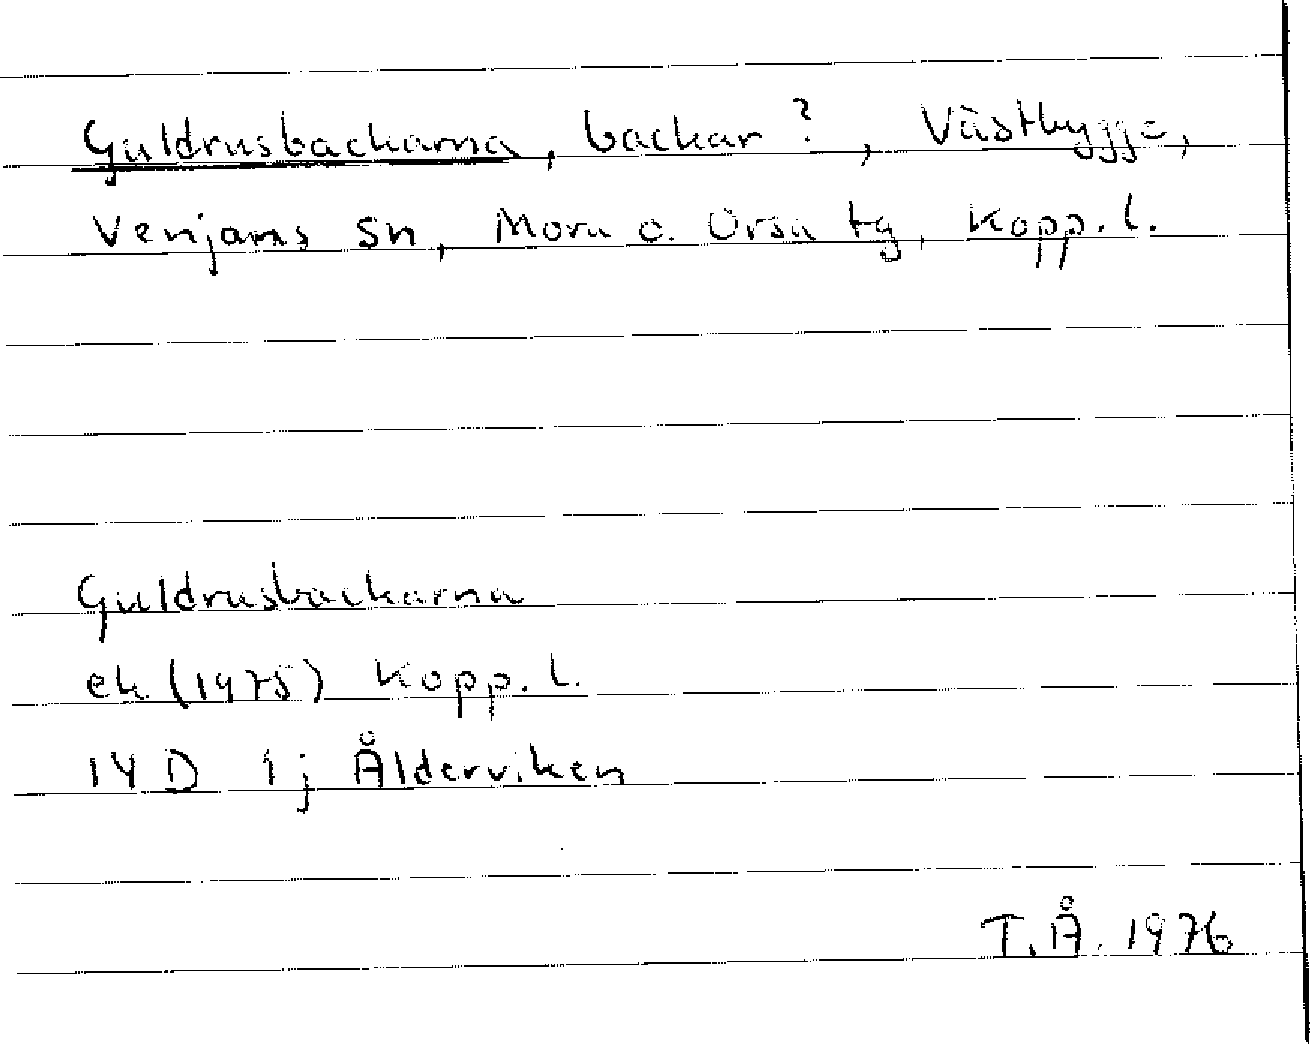 Guldrusbackarna, backar?, Västbygge,
Venjans sn, Mora o. Orsa tg, Kopp. l.
Guldrusbackarna
ek (1975) Kopp. l.
14 D 1 j Ålderviken
T.Å. 1976